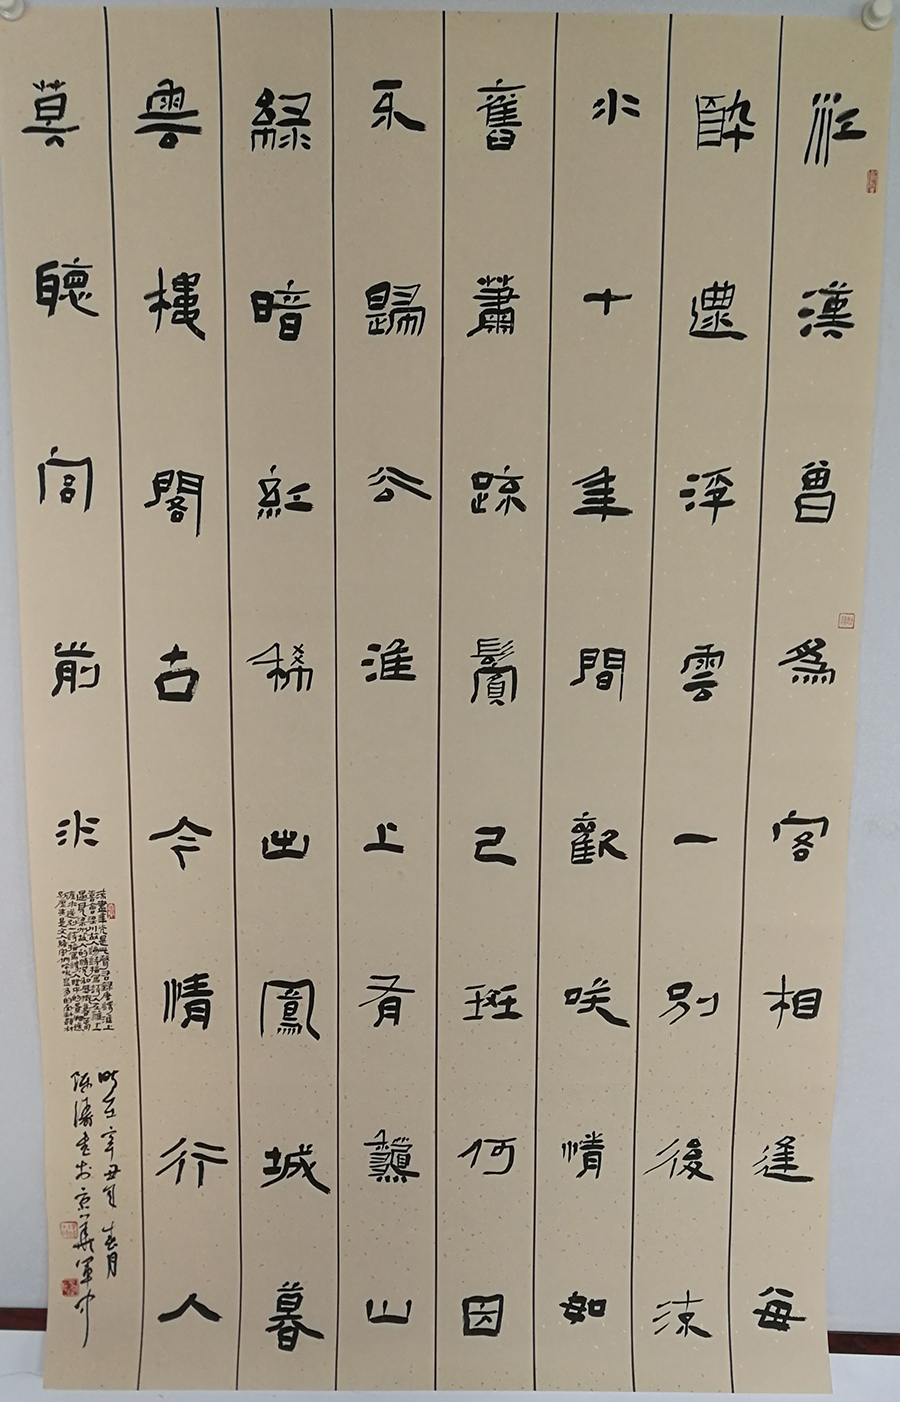 江漢曾爲客相逢每
醉還浮雲一別後流
水十年間歡咲情如
舊蕭疏鬢已斑何因
不歸去淮上有龝山
綠暗紅稀出鳳城暮
雲樓閣古今情行人
莫聽宮前水
時在辛丑年春月
陳濤書於京華軍中